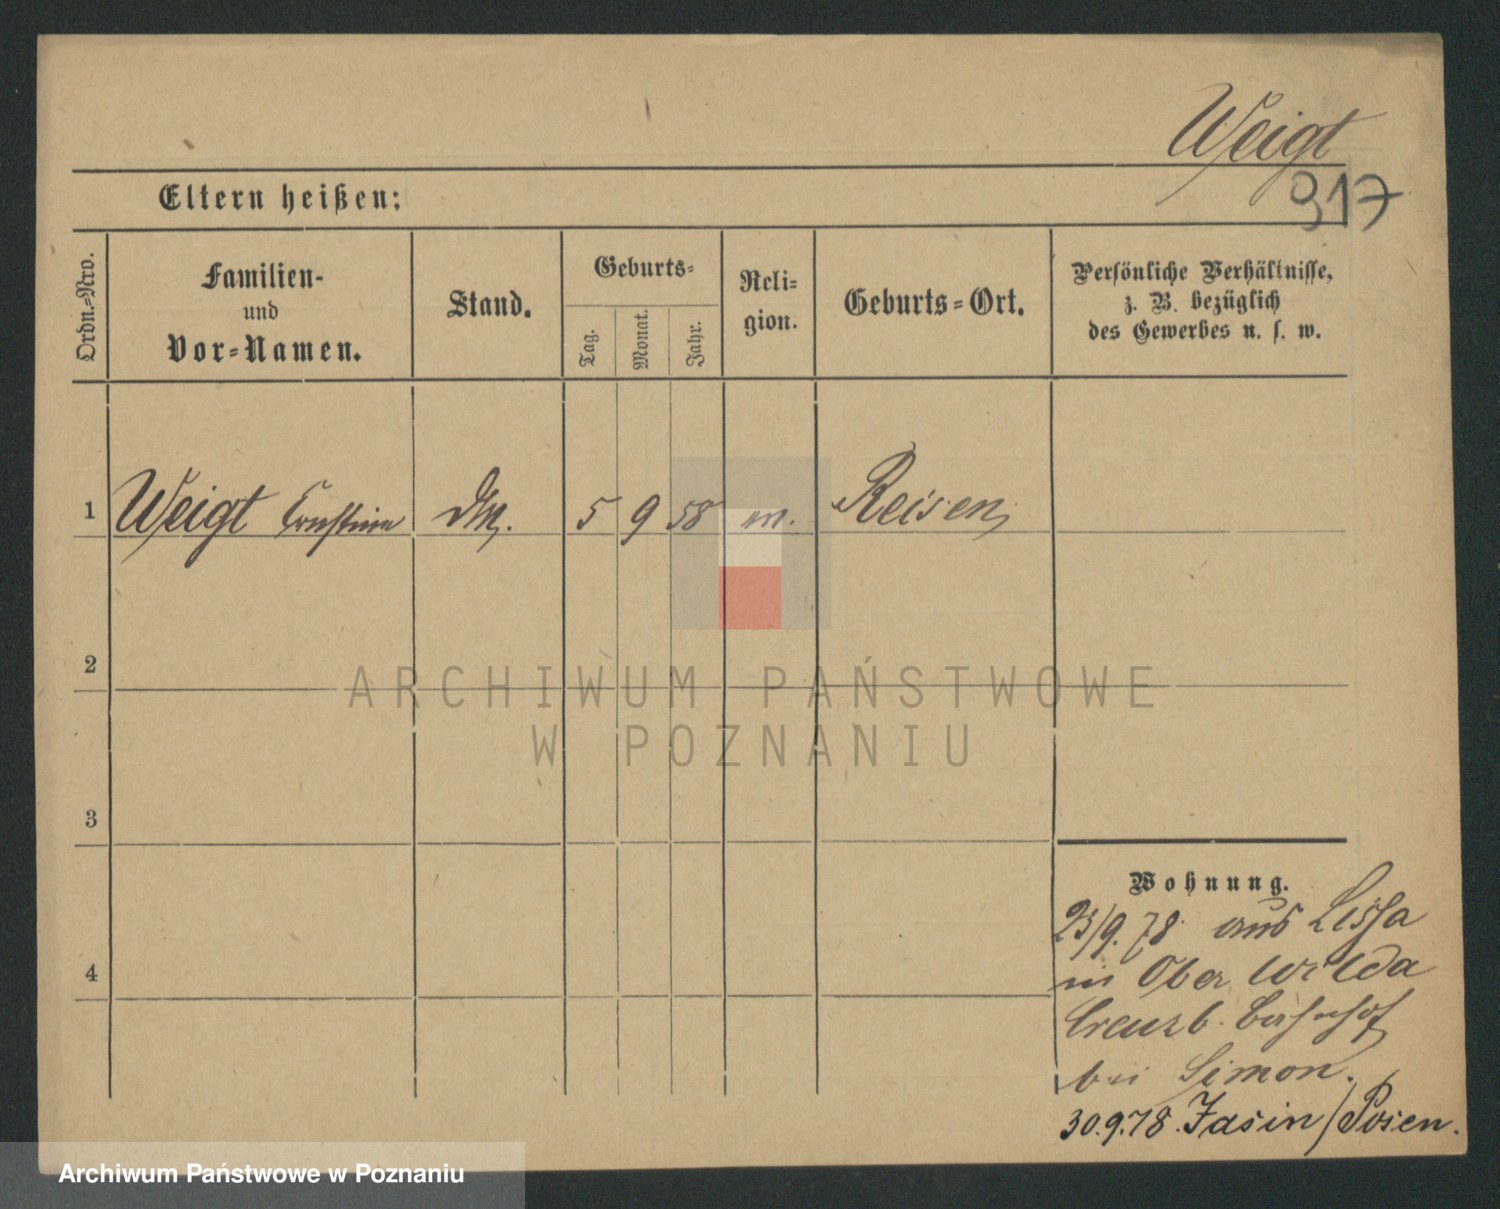 Weigt
317
Eltern heißen:
Ordn.-Nro.
Familien-
und
Vor-Namen.
Stand.
Geburts-
Tag.
Monat.
Jahr.
Reli-
gion.
Geburts-Ort.
Persönliche Verhältnisse,
z. B. bezüglich
des Gewerbes u. s. w.
1 Weigt Ernstine DM. 5 9 58 Reisen
2
3
4
ARCHIWUM PAŃSTWOWE
W POZNANIU
Wohnung.
23/9.78 aus Lissa
in Ober Wilda
Creuzb. Bahnhof
bei Simon.
30.9.78. Jasin/Posen.
Archiwum Państwowe w Poznaniu